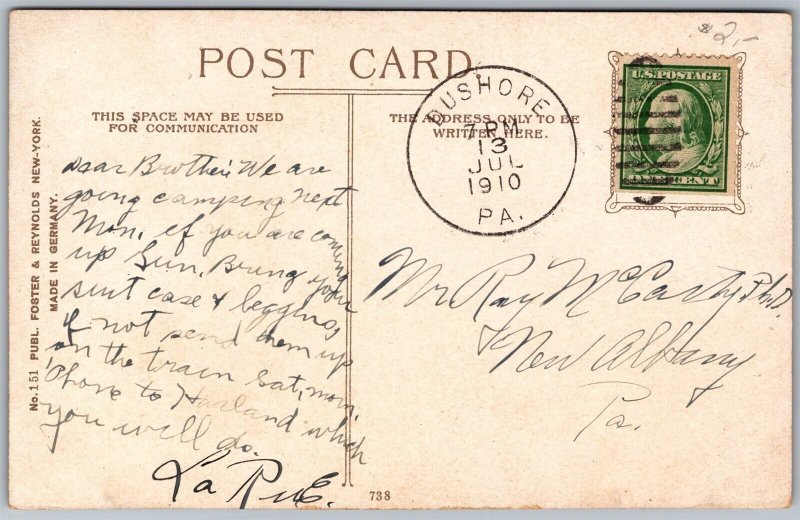 $2,-
POST CARD
THIS SPACE MAY BE USED
FOR COMMUNICATION
THE ADDRESS ONLY TO BE
WRITTEN HERE.
DUSHORE
7 PM
13
JUL
1910
PA.
U.S. POSTAGE
ONE CENT
No. 151 PUBL. FOSTER & REYNOLDS NEW-YORK.
MADE IN GERMANY.
Dear Brother: We are
going camping next
Mon, if you are coming
up Sun, Bring your
suit case & leggings,
if not send them up
on the train Sat, morn,
'Phone to Harland which
you will do.
La Rue.
Mr Ray McCarty, Ph.D.
New Albany
Pa.
738